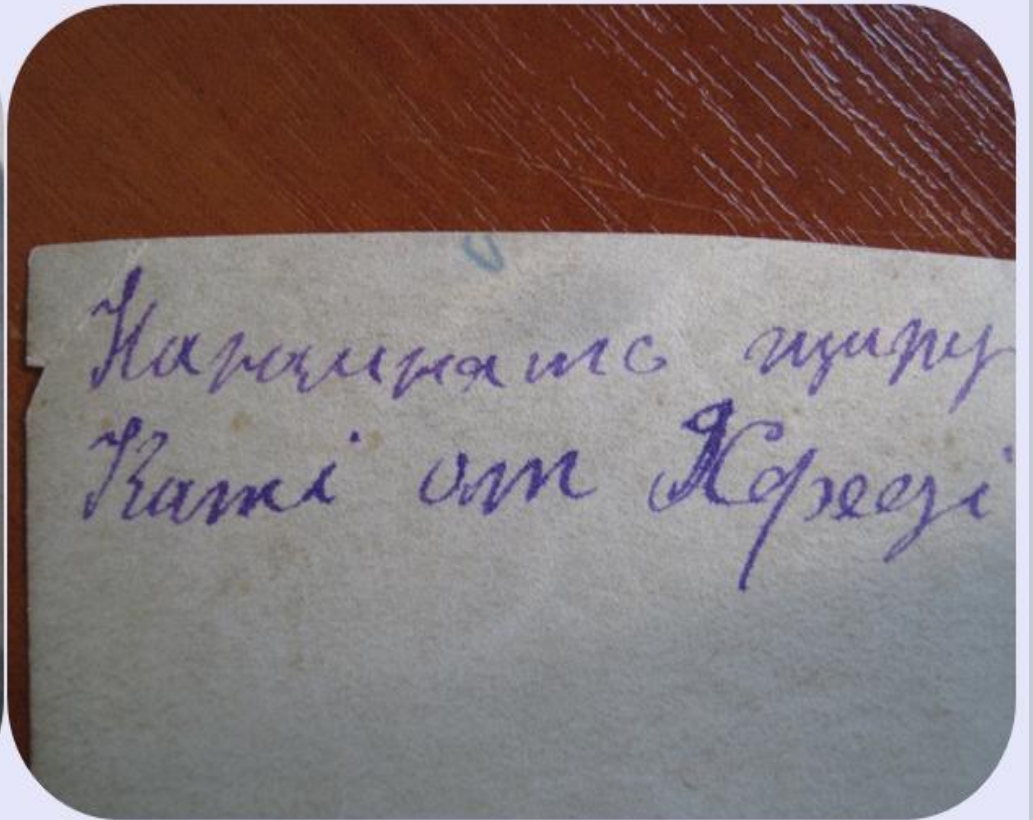 Напамнять щиру
Каті от Хфеді